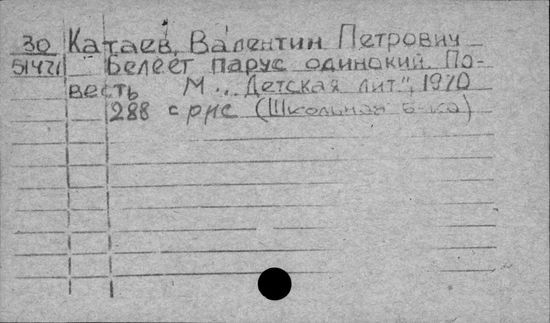 30 Катаев, Валентин Петрович
51421 Белеет парус одинокий По-
весть М., „Детская лит", 1970
288 с рис (Школьная б-ка)